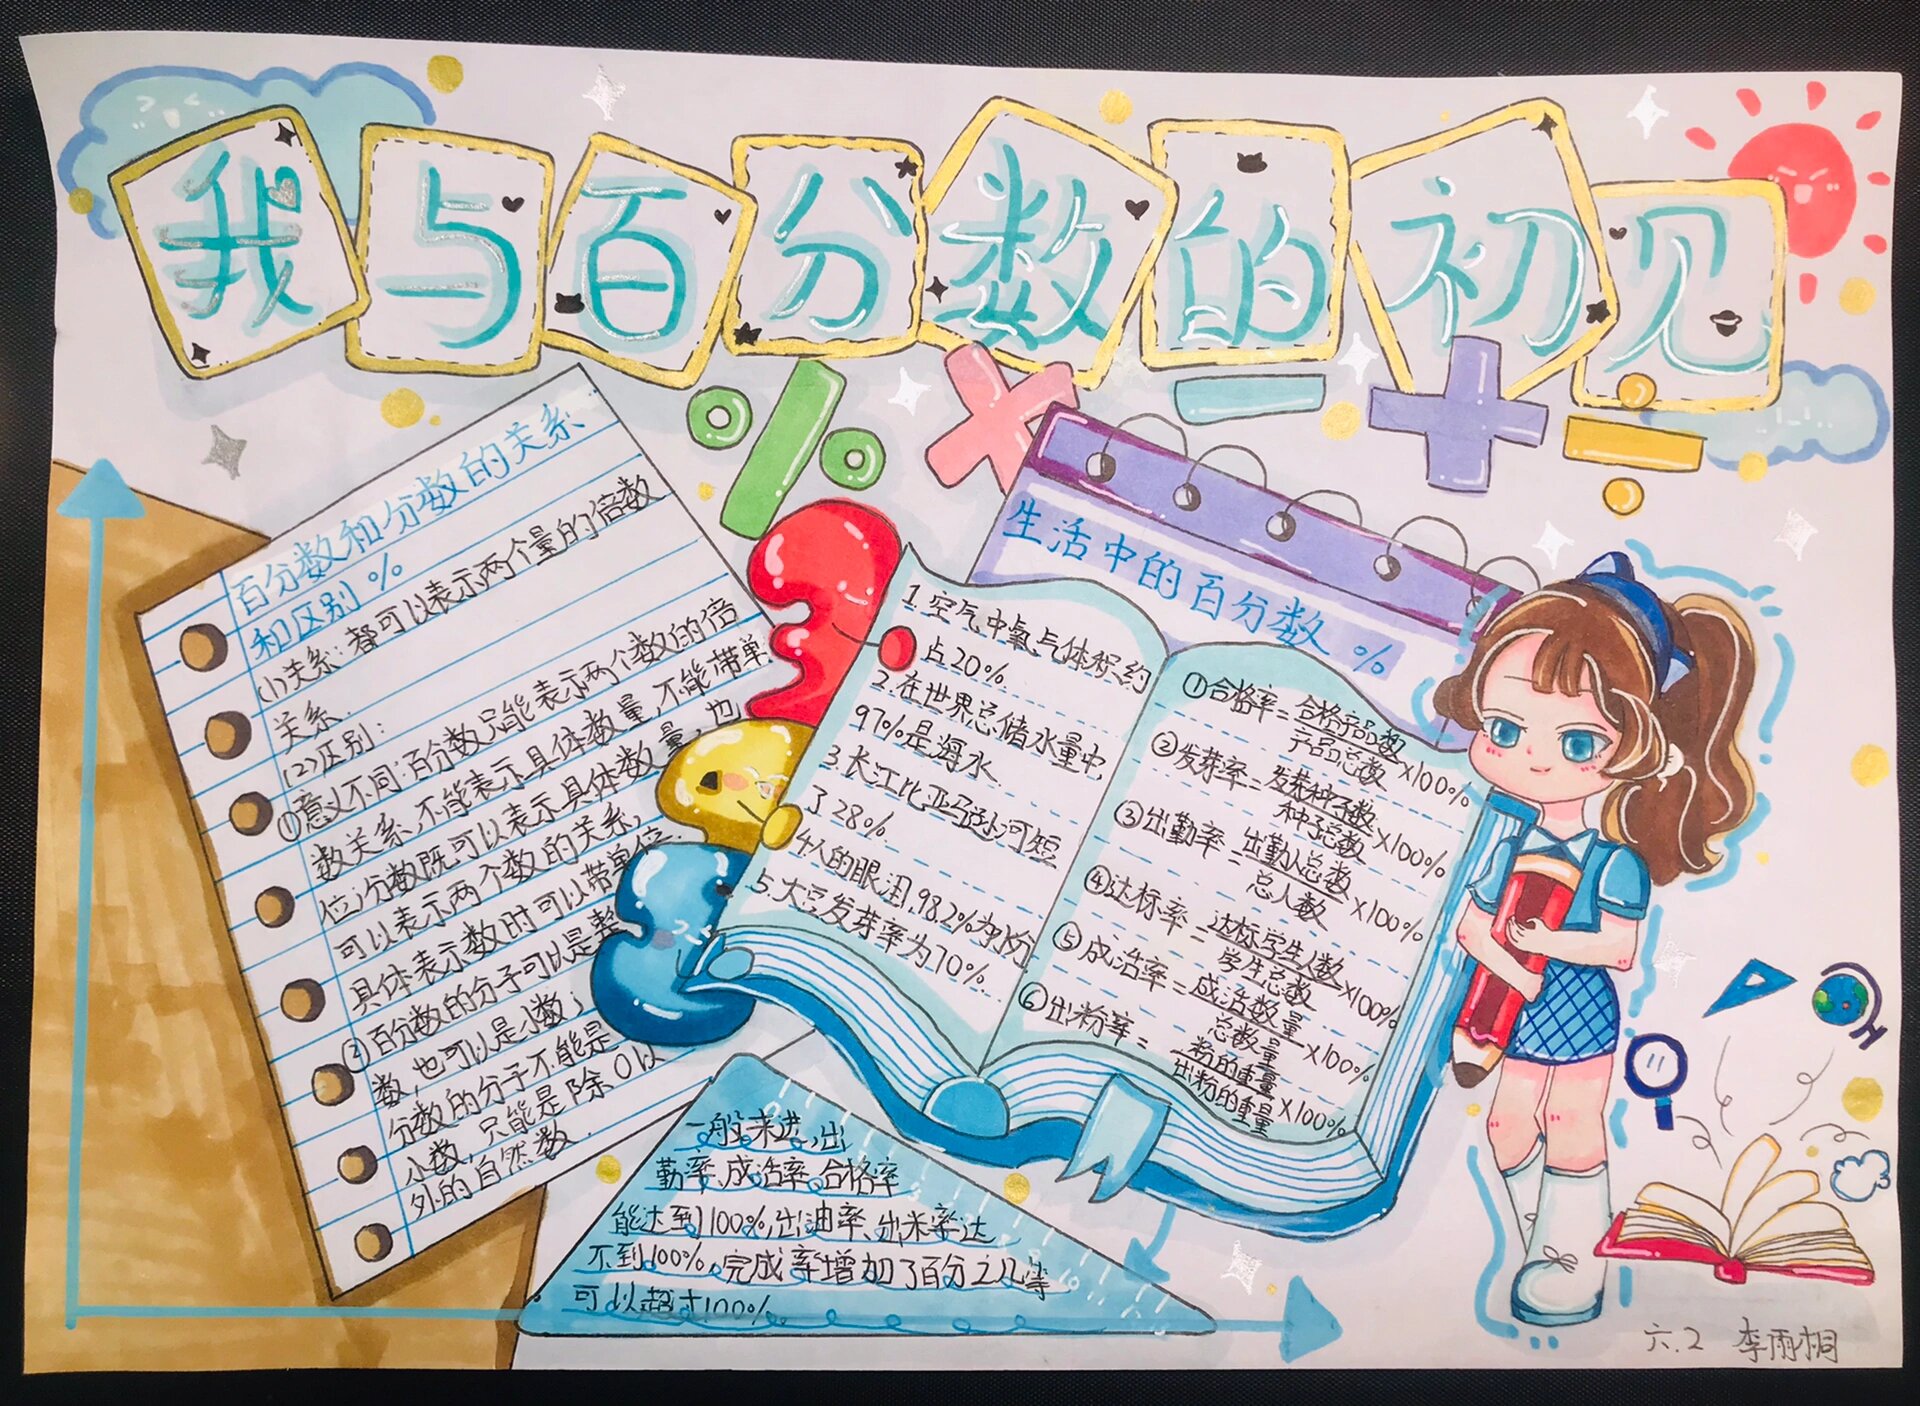 我与百分数的初见
百分数和分数的关系
和区别 %
(1)关系:都可以表示两个量的倍数
关系.
(2)区别:
①意义不同:百分数只能表示两个数的倍
数关系,不能表示具体数量,不能带单
位;分数既可以表示具体数量,也
可以表示两个数的关系,
具体表示数时可以带单位.
②百分数的分子可以是整
数,也可以是小数;
分数的分子不能是
小数,只能是除0以
外的自然数.
生活中的百分数 %
1.空气中氧气体积约
占20%
2.在世界总储水量中,
97%是海水
3.长江比亚马逊河短
了28%
4人的眼泪,98.2%为水份
5.大豆发芽率为70%.
①合格率=合格产品数
产品总数×100%
②发芽率=发芽种子数
种子总数×100%
③出勤率=出勤人总数
总人数×100%
④达标率=达标学生人数
学生总数×100%
⑤成活率=成活数量
总数量×100%
⑥出粉率=粉的重量
出粉的重量×100%
一般来讲,出
勤率,成活率,合格率
能达到100%,出油率、出米率达
不到100%,完成率增加了百分之几等
可以超过100%
六.2 李雨桐